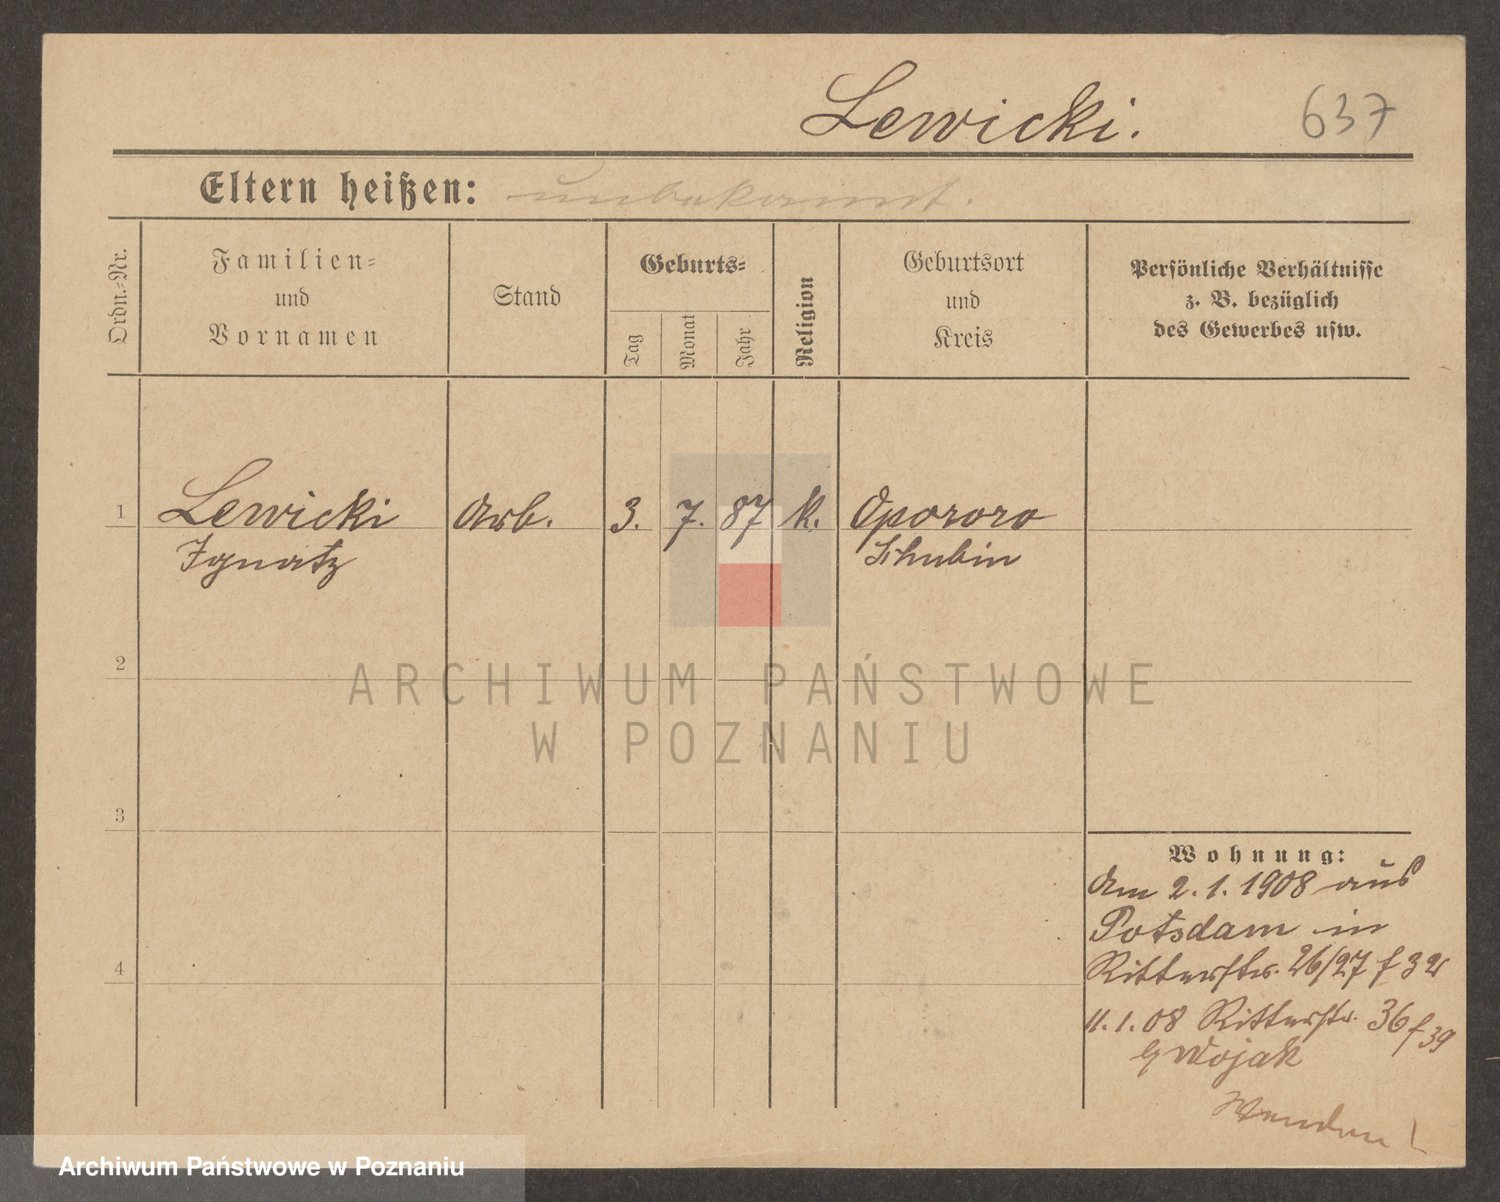 Lewicki. 637
Eltern heißen: unbekannt.
Ordn.-Nr.
Familien-
und
Vornamen
Stand
Geburts-
Tag
Monat
Jahr
Religion
Geburtsort
und
Kreis
Persönliche Verhältnisse
z. B. bezüglich
des Gewerbes usw.
1 Lewicki Arb. 3. 7. 87 k. Opororo
Ignatz Schubin
2
ARCHIWUM PAŃSTWOWE
W POZNANIU
3
Wohnung:
Am 2.1.1908 aus
Potsdam in
4
Ritterstr. 26/27 f 32
11.1.08 Ritterstr. 36 f 39
Wojak
Wenden!
Archiwum Państwowe w Poznaniu